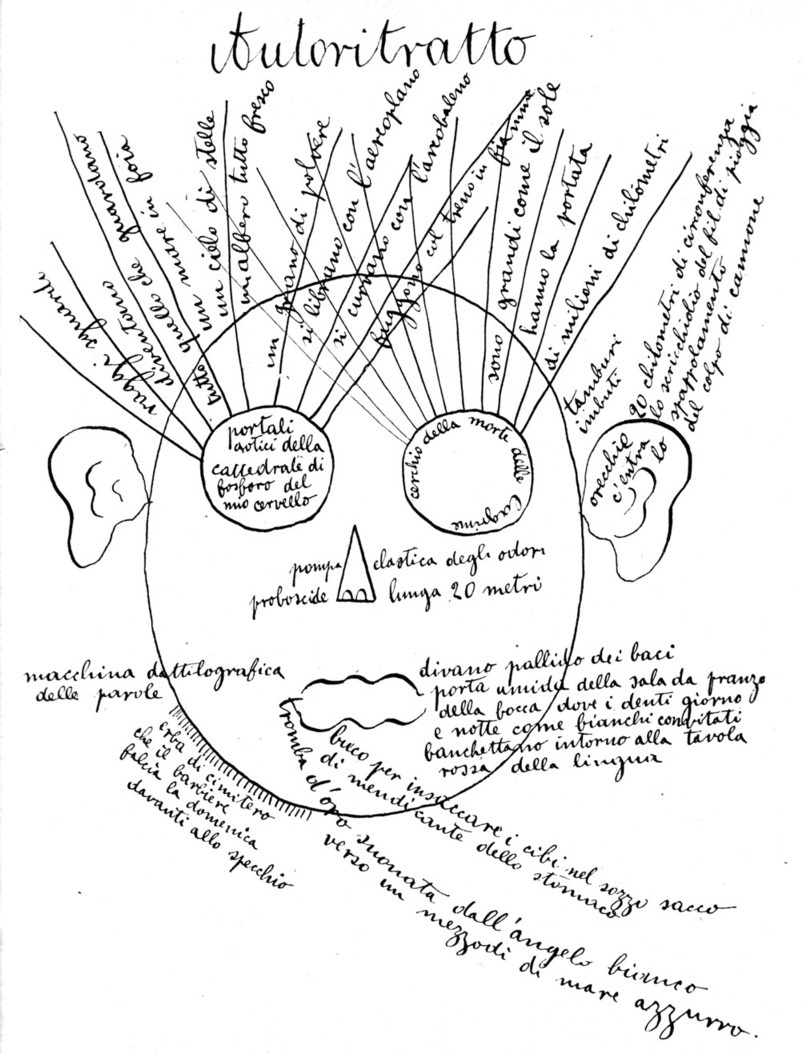 Autoritratto
raggi sguardi
diventano
tutto quello che guardano
un mare in foia
un cielo di stelle
un albero tutto fresco
un grano di polvere
si librano con l'aereoplano
si curvano con l'arcobaleno
fuggono col treno in fiamme
sono grandi come il sole
hanno la portata
di milioni di chilometri
tamburi
imbuti
20 chilometri di circonferenza
lo scricchiolio del fil di pioggia
spappolamento
del colpo di cannone
portali
gotici della
cattedrale di
fosforo del
mio cervello
cerchio della morte delle lagrime
orecchio
c'entra
lo
pompa elastica degli odori
proboscide lunga 20 metri
macchina dattilografica
delle parole
divano pallido dei baci
porta umida della sala da pranzo
della bocca dove i denti giorno
e notte come bianchi convitati
banchettano intorno alla tavola
rossa della lingua
buco per insaccare i cibi nel sozzo sacco
di mendicante dello stomaco
tromba d'oro suonata dall'angelo bianco
verso un mezzodì di mare azzurro.
erba di cimitero
che il barbiere
falcia la domenica
davanti allo specchio